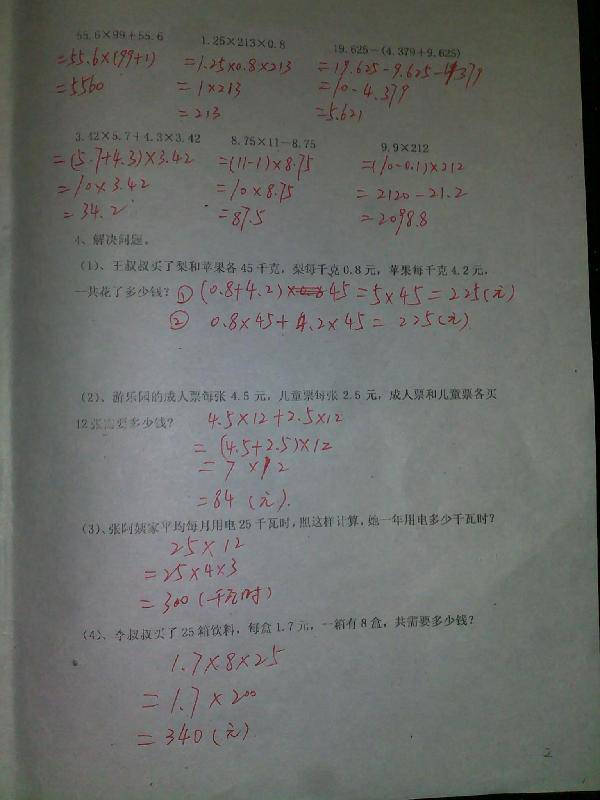 55.6×99+55.6
=55.6×(99+1)
=5560
1.25×213×0.8
=1.25×0.8×213
=1×213
=213
19.625-(4.379+9.625)
=19.625-9.625-4.379
=10-4.379
=5.621
3.42×5.7+4.3×3.42
=(5.7+4.3)×3.42
=10×3.42
=34.2
8.75×11-8.75
=(11-1)×8.75
=10×8.75
=87.5
9.9×212
=(10-0.1)×212
=2120-21.2
=2098.8
4、解决问题。
(1)、王叔叔买了梨和苹果各45千克，梨每千克0.8元，苹果每千克4.2元，
一共花了多少钱？ ① (0.8+4.2)×45=5×45=225(元)
② 0.8×45+4.2×45=225(元)
(2)、游乐园的成人票每张4.5元，儿童票每张2.5元，成人票和儿童票各买
12张需要多少钱？ 4.5×12+2.5×12
=(4.5+2.5)×12
=7×12
=84(元).
(3)、张阿姨家平均每月用电25千瓦时，照这样计算，她一年用电多少千瓦时？
25×12
=25×4×3
=300(千瓦时)
(4)、李叔叔买了25箱饮料，每盒1.7元，一箱有8盒，共需要多少钱？
1.7×8×25
=1.7×200
=340(元)
2